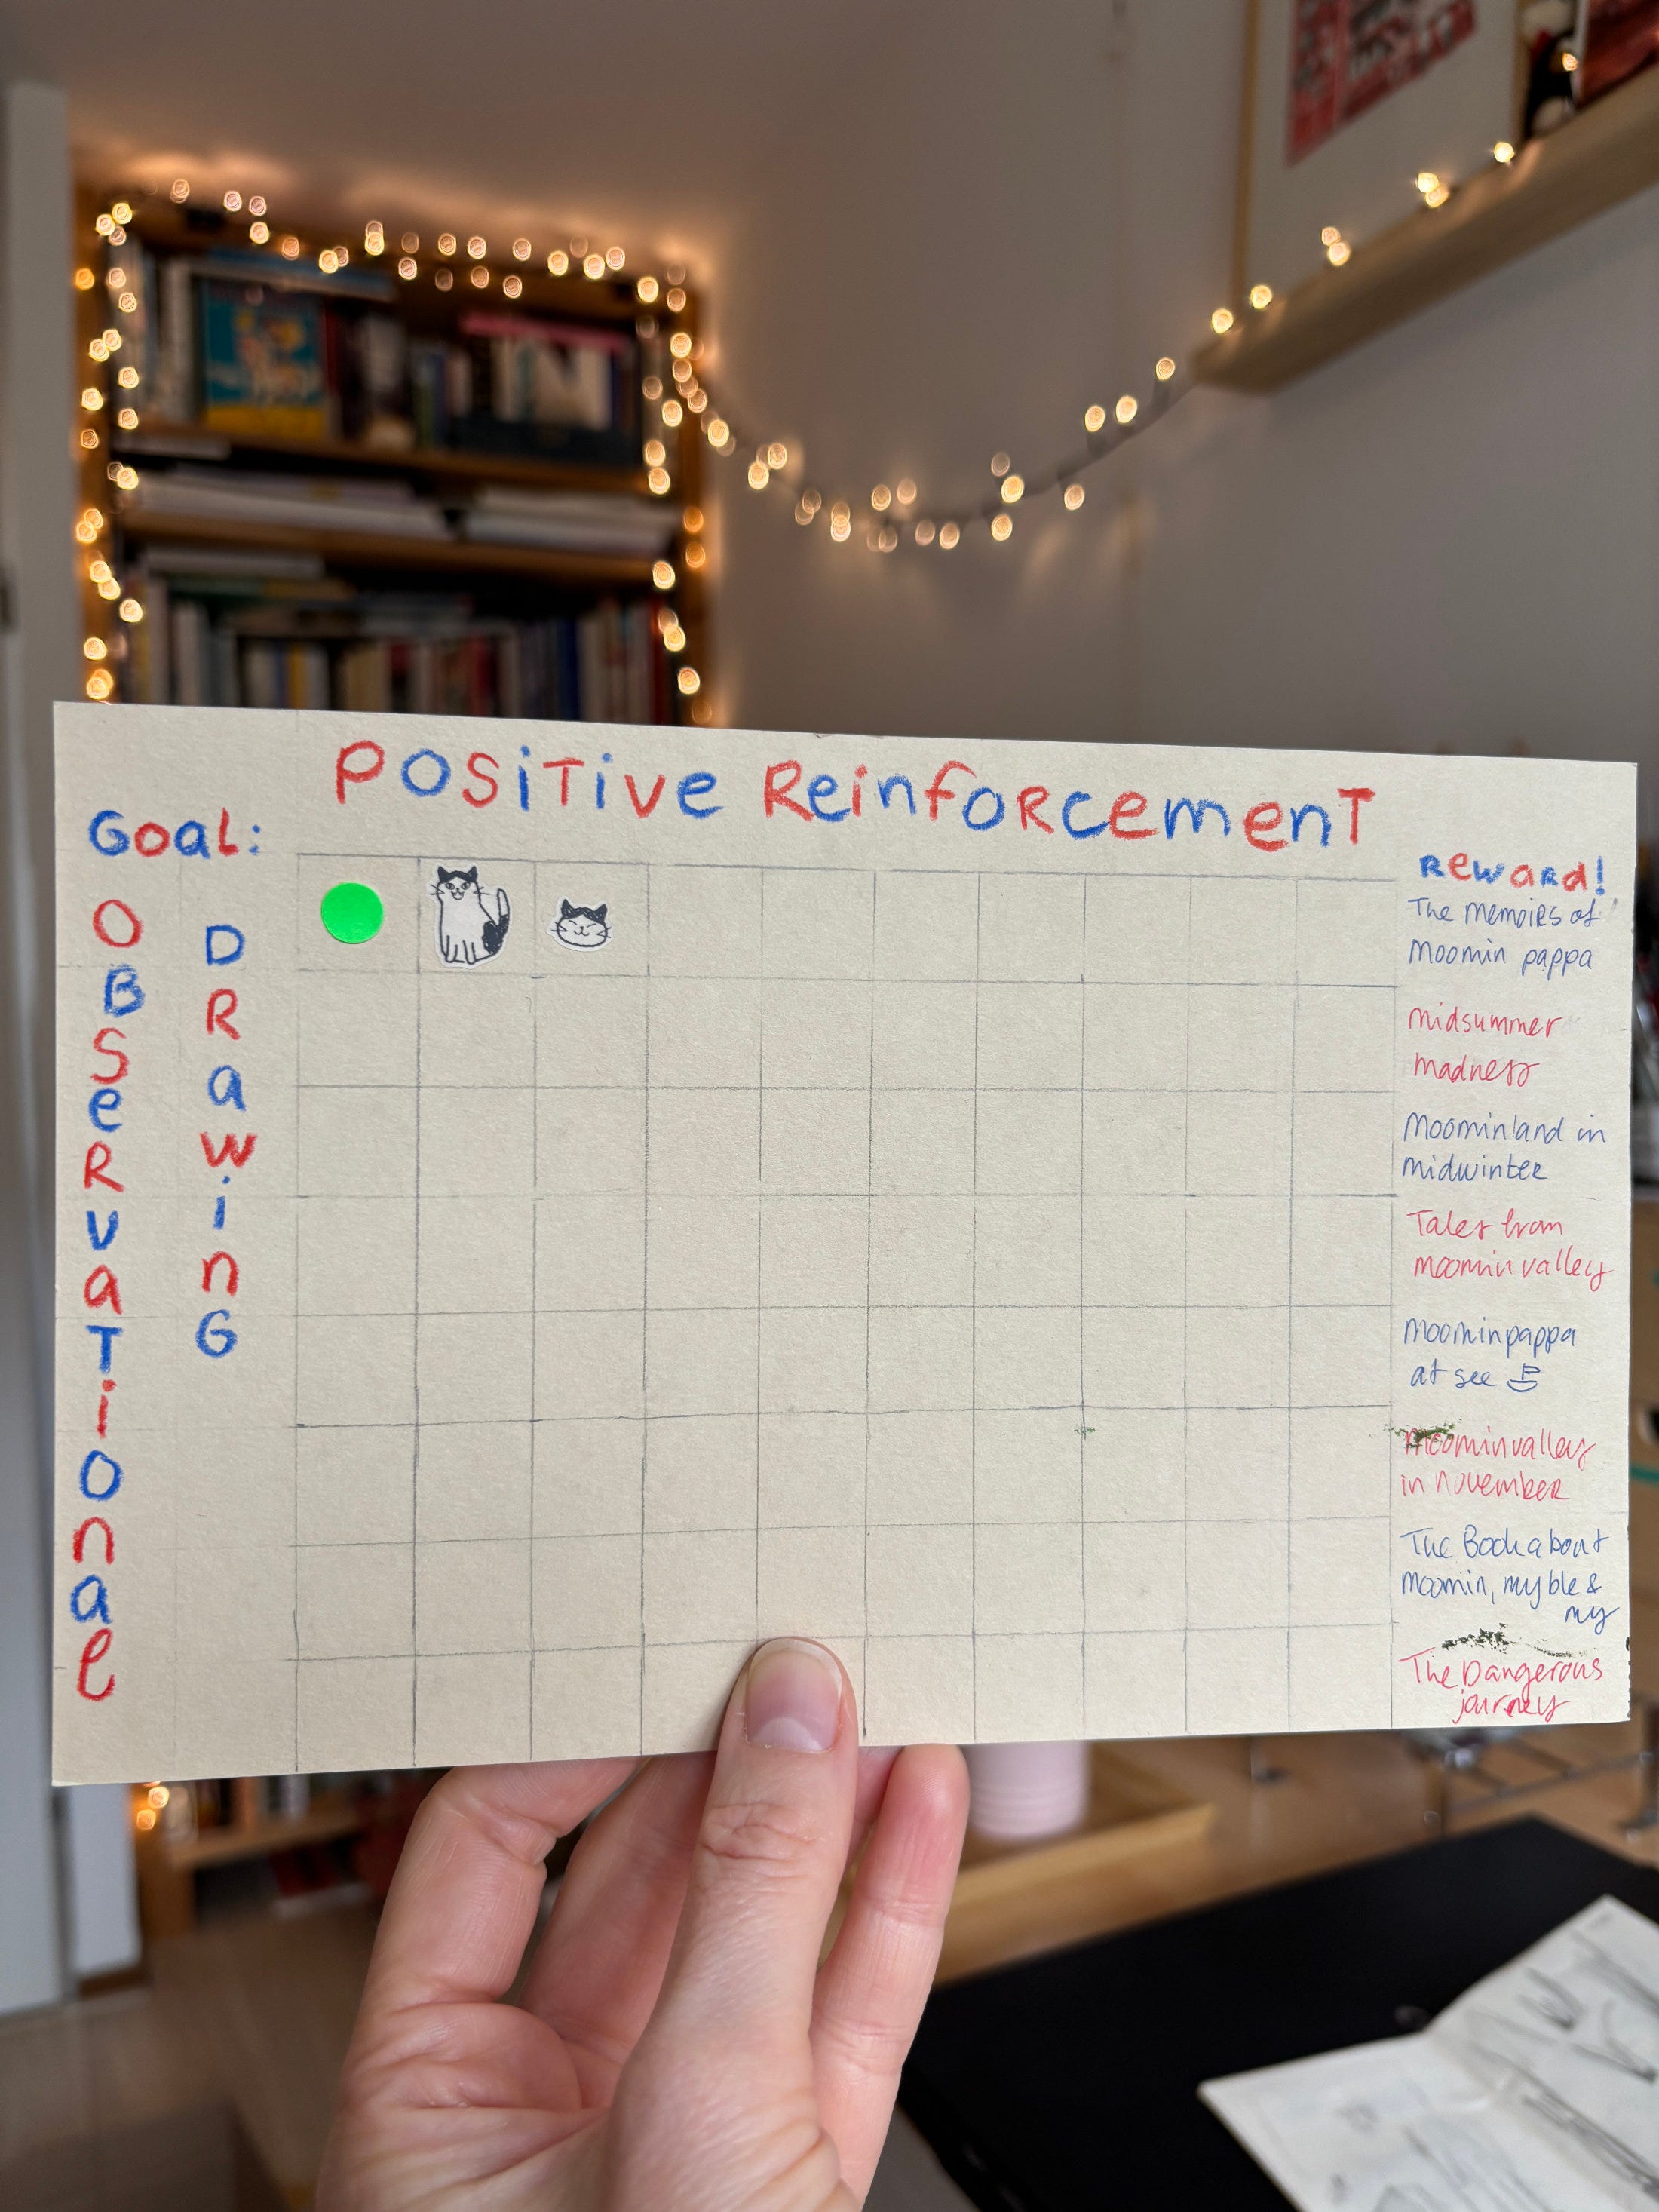 Positive Reinforcement
Goal:
Observational
Drawing
Reward!
The memoirs of
Moomin pappa
midsummer
madness
Moominland in
midwinter
Tales from
moominvalley
Moominpappa
at see
Moominvalley
in november
The Book about
moomin, myble &
my
The Dangerous
journey